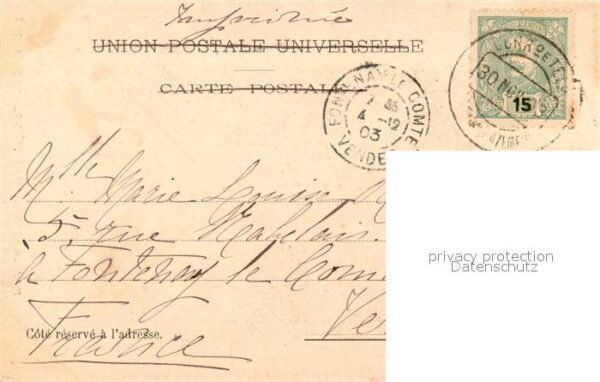 Imprimé
UNION POSTALE UNIVERSELLE
CARTE POSTALE
FONTENAY-LE-COMTE
4 -12
03
VENDEE
30 NOV
15
Mlle Marie Louise
5, rue Rabelais
à Fontenay le Com
Ve
Côté réservé à l'adresse.
France
privacy protection
Datenschutz